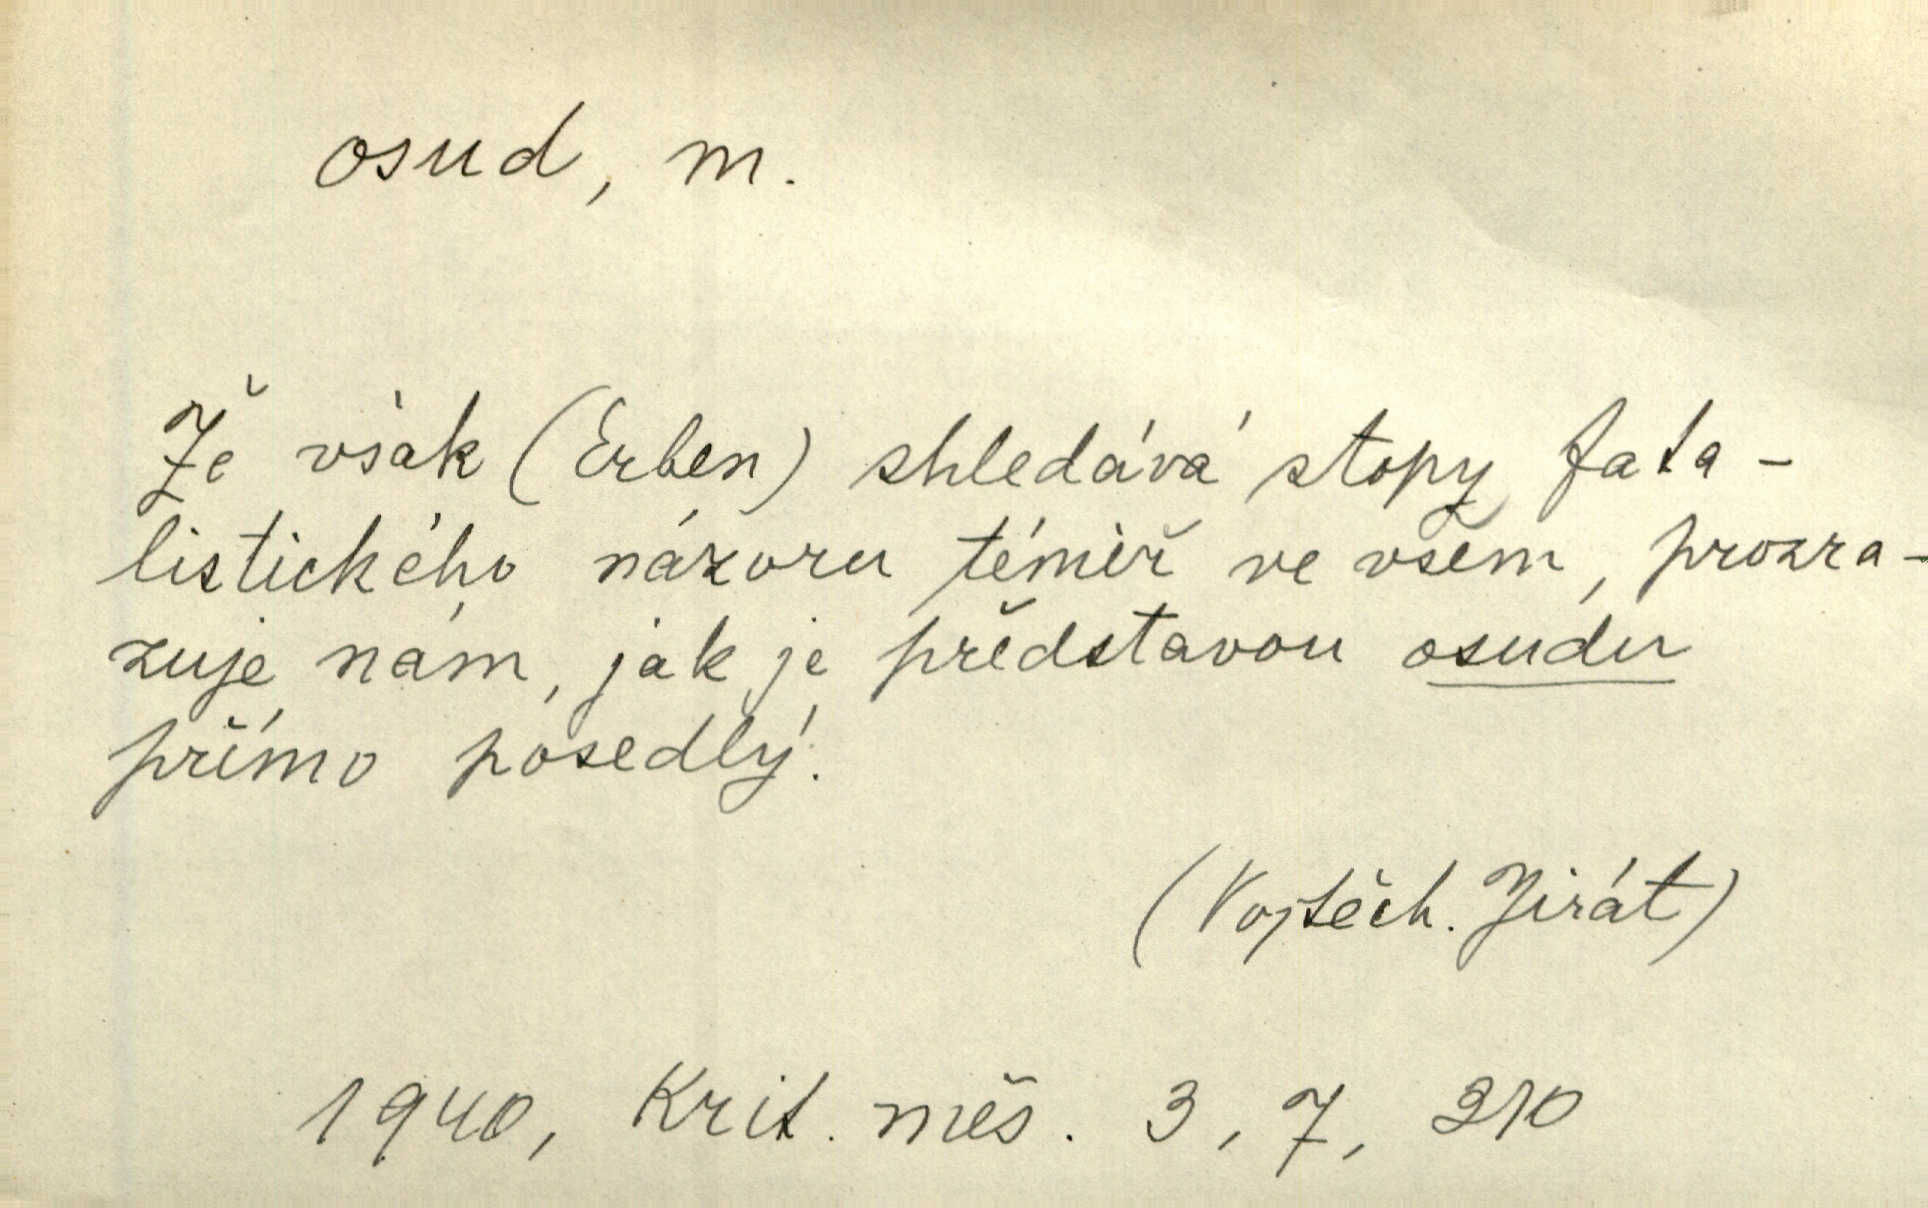 osud, m.
Že však (Erben) shledává stopy fata-
listického názoru téměř ve všem, prozra-
zuje nám, jak je představou osudu
přímo posedlý.
(Vojtěch. Jirát)
1940, Krit. měs. 3, 7, 210